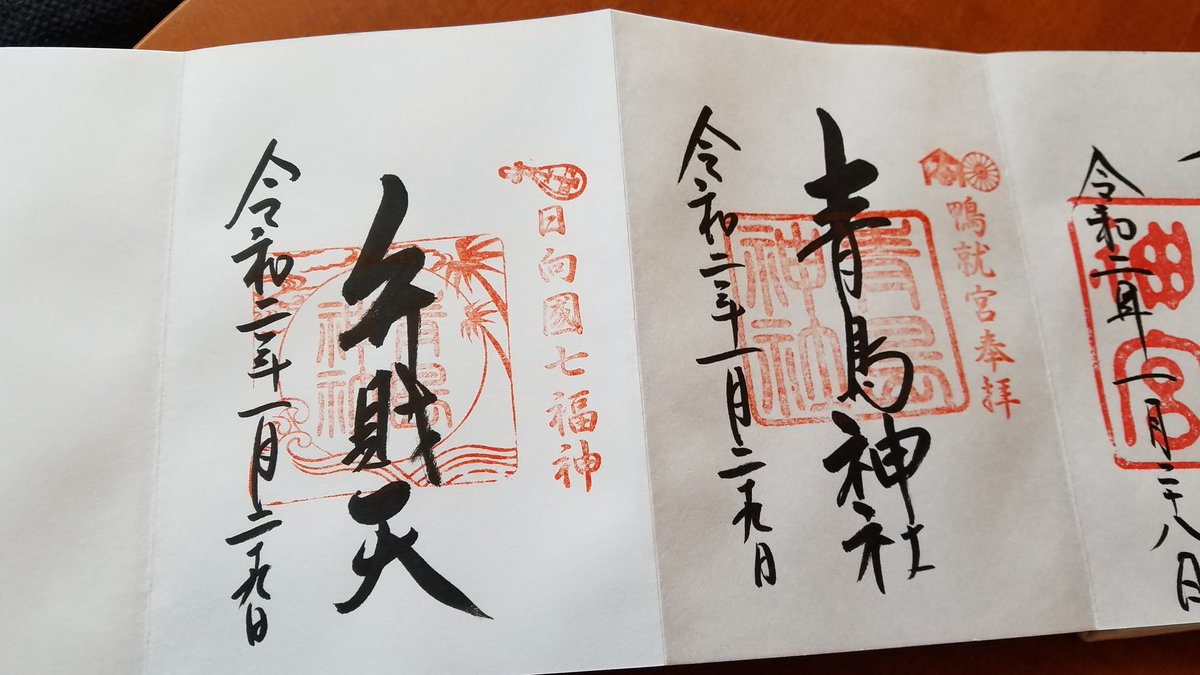 神宮
令和二年一月二十八日
鴨就宮奉拝
青島神社
青島
神社
令和二年一月二十九日
日向國七福神
弁財天
青島
神社
令和二年一月二十九日